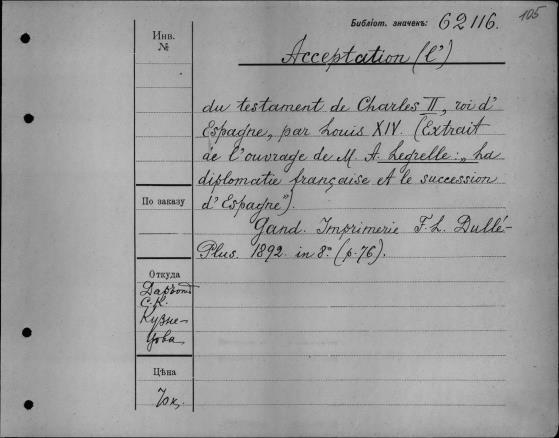 105
Библіот. значекъ: 62116.
Инв.
№
Acceptation (l')
du testament de Charles II, roi d'
Espagne, par Louis XIV. (Extrait
de l'ouvrage de M. A. Legrelle: „La
diplomatie française et le succession
d'Espagne").
По заказу
Gand. Imprimerie F. L. Dullé-
Plus. 1892. in 8° (p. 76).
Откуда
Даръ отъ
С. К.
Кузне-
цова
Цѣна